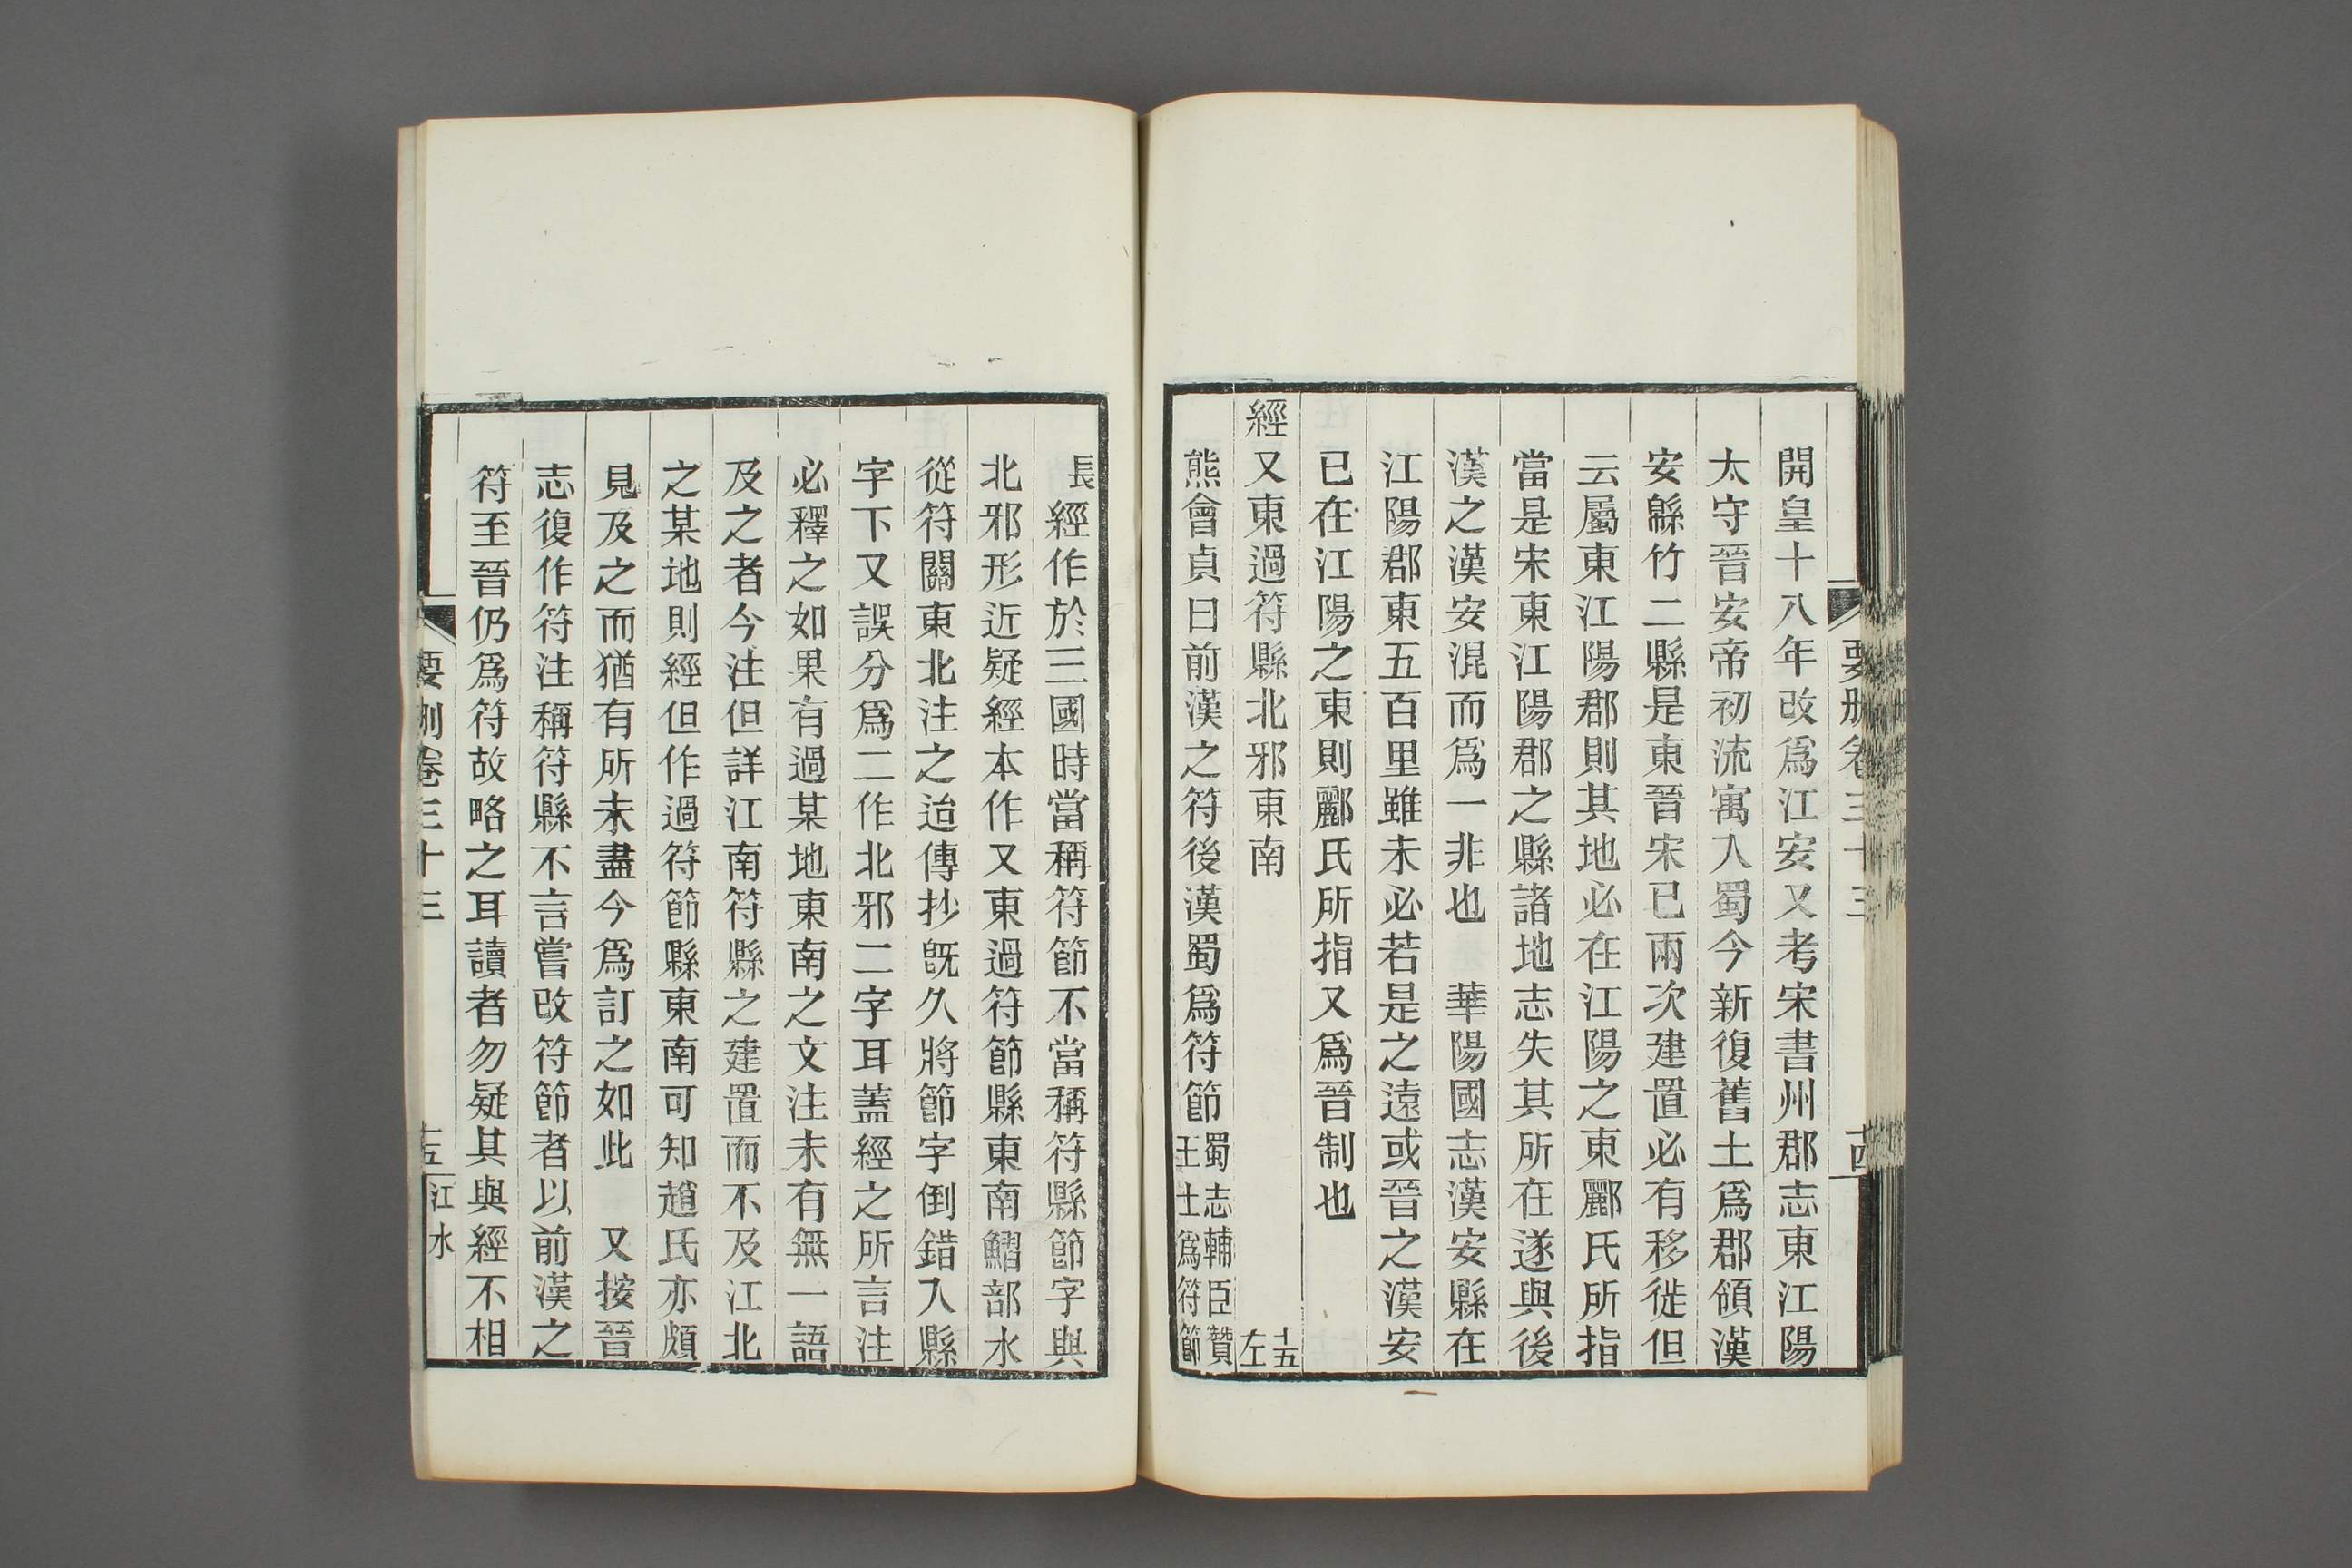 要刪卷三十三 十四
開皇十八年改爲江安又考宋書州郡志東江陽
太守晉安帝初流寓入蜀今新復舊土爲郡領漢
安緜竹二縣是東晉宋已兩次建置必有移徙但
云屬東江陽郡則其地必在江陽之東酈氏所指
當是宋東江陽郡之縣諸地志失其所在遂與後
漢之漢安混而爲一非也 華陽國志漢安縣在
江陽郡東五百里雖未必若是之遠或晉之漢安
已在江陽之東則酈氏所指又爲晉制也
經又東過符縣北邪東南 十五左
熊會貞曰前漢之符後漢蜀爲符節蜀志輔臣贊王士爲符節
長經作於三國時當稱符節不當稱符縣節字與
北邪形近疑經本作又東過符節縣東南鰼部水
從符關東北注之迨傳抄旣久將節字倒錯入縣
字下又誤分爲二作北邪二字耳蓋經之所言注
必釋之如果有過某地東南之文注未有無一語
及之者今注但詳江南符縣之建置而不及江北
之某地則經但作過符節縣東南可知趙氏亦頗
見及之而猶有所未盡今爲訂之如此 又按晉
志復作符注稱符縣不言嘗改符節者以前漢之
符至晉仍爲符故略之耳讀者勿疑其與經不相
要刪卷三十三 十五 江水